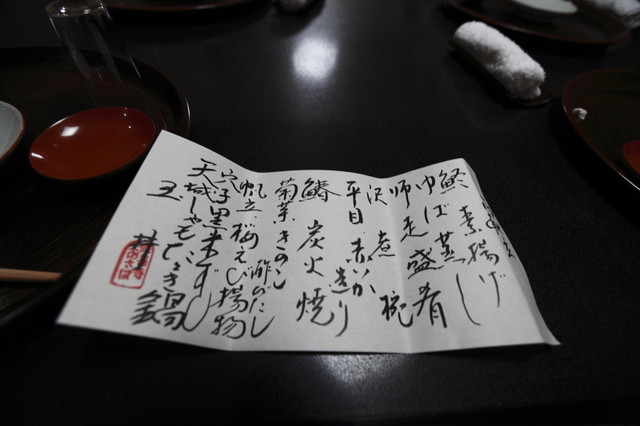 素揚げ
ゆば蒸し
師走盛肴
沢煮椀
平目 赤いか 造り
炭火焼
菊芋 きのこ
酢のだし
帆立 桜えび 揚物
穴子 黒米ずし
天城しゃも
鍋
玉